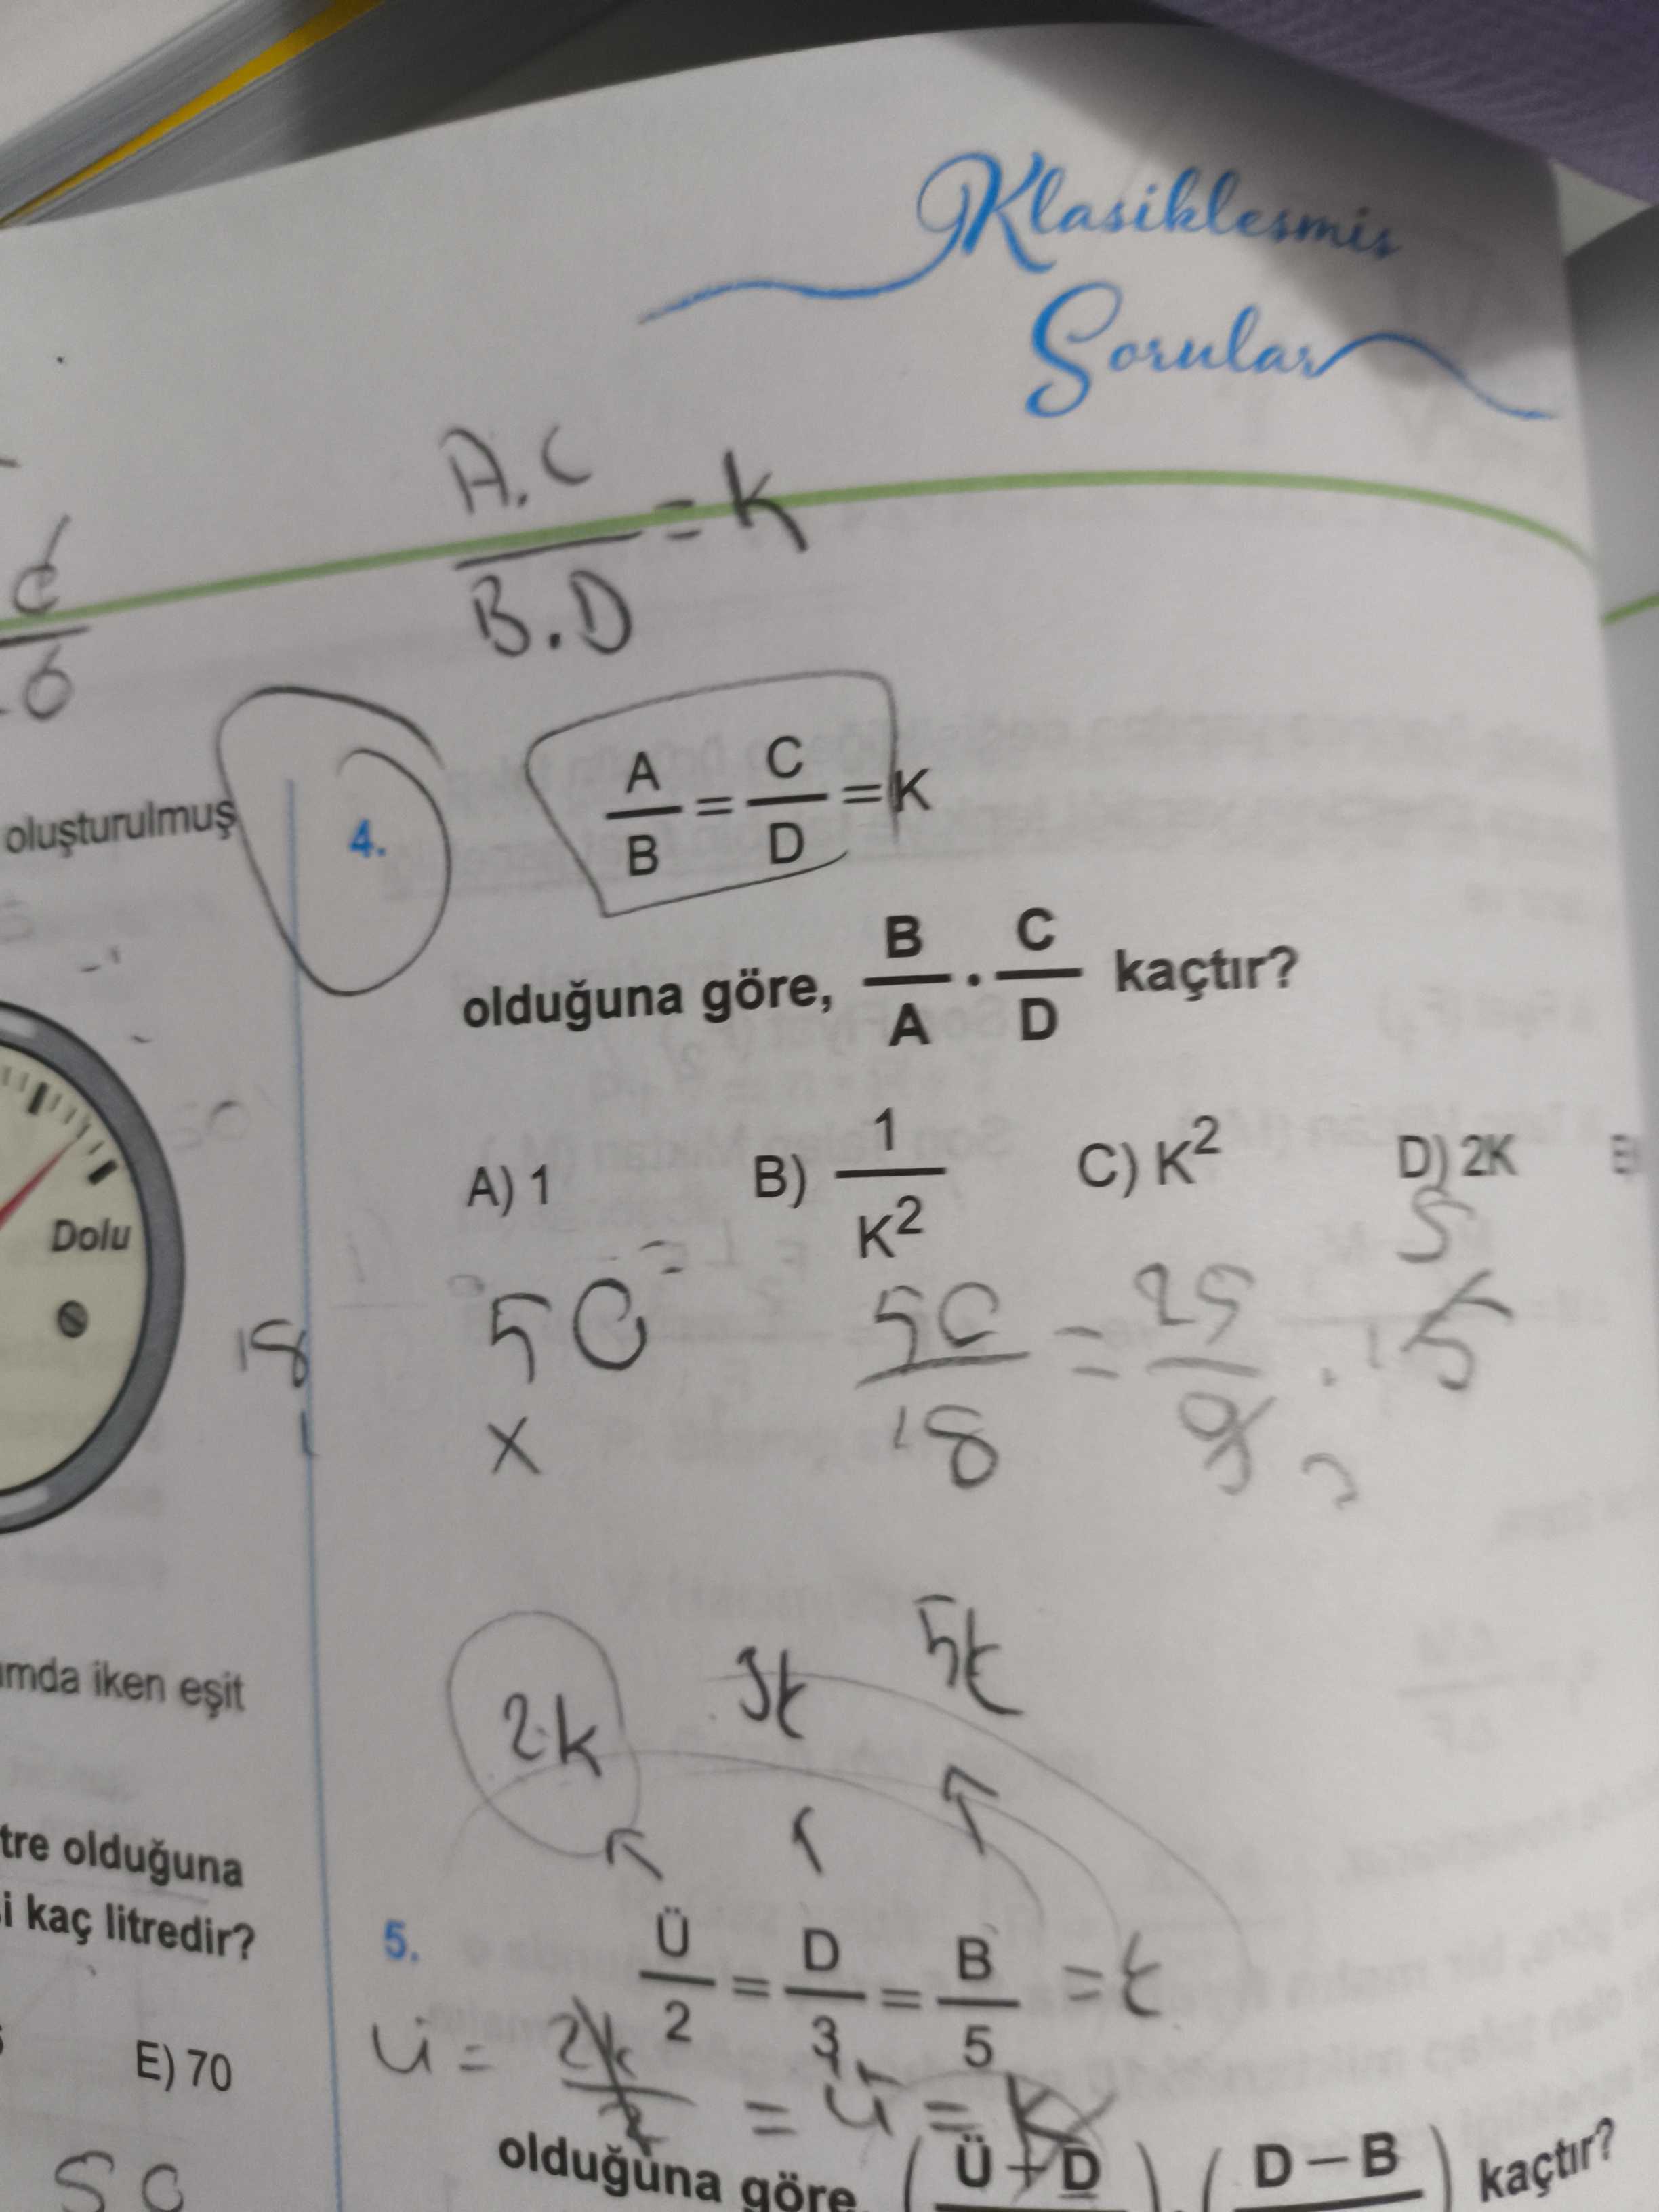 Klasikleşmiş
Sorular
A.C
B.D
= K
6
oluşturulmuş
4.
A/B = C/D = K
olduğuna göre, B/A . C/D kaçtır?
A) 1 B) 1/K² C) K² D) 2K
Dolu
18
50
x
50/18 = 25/9 .
5
2k 3t 5t
mda iken eşit
tre olduğuna
i kaç litredir?
5.
Ü/2 = D/3 = B/5 = t
E) 70
ü = 2k/2 = ü = K
olduğuna göre, (Ü + D) . (D – B) kaçtır?
50